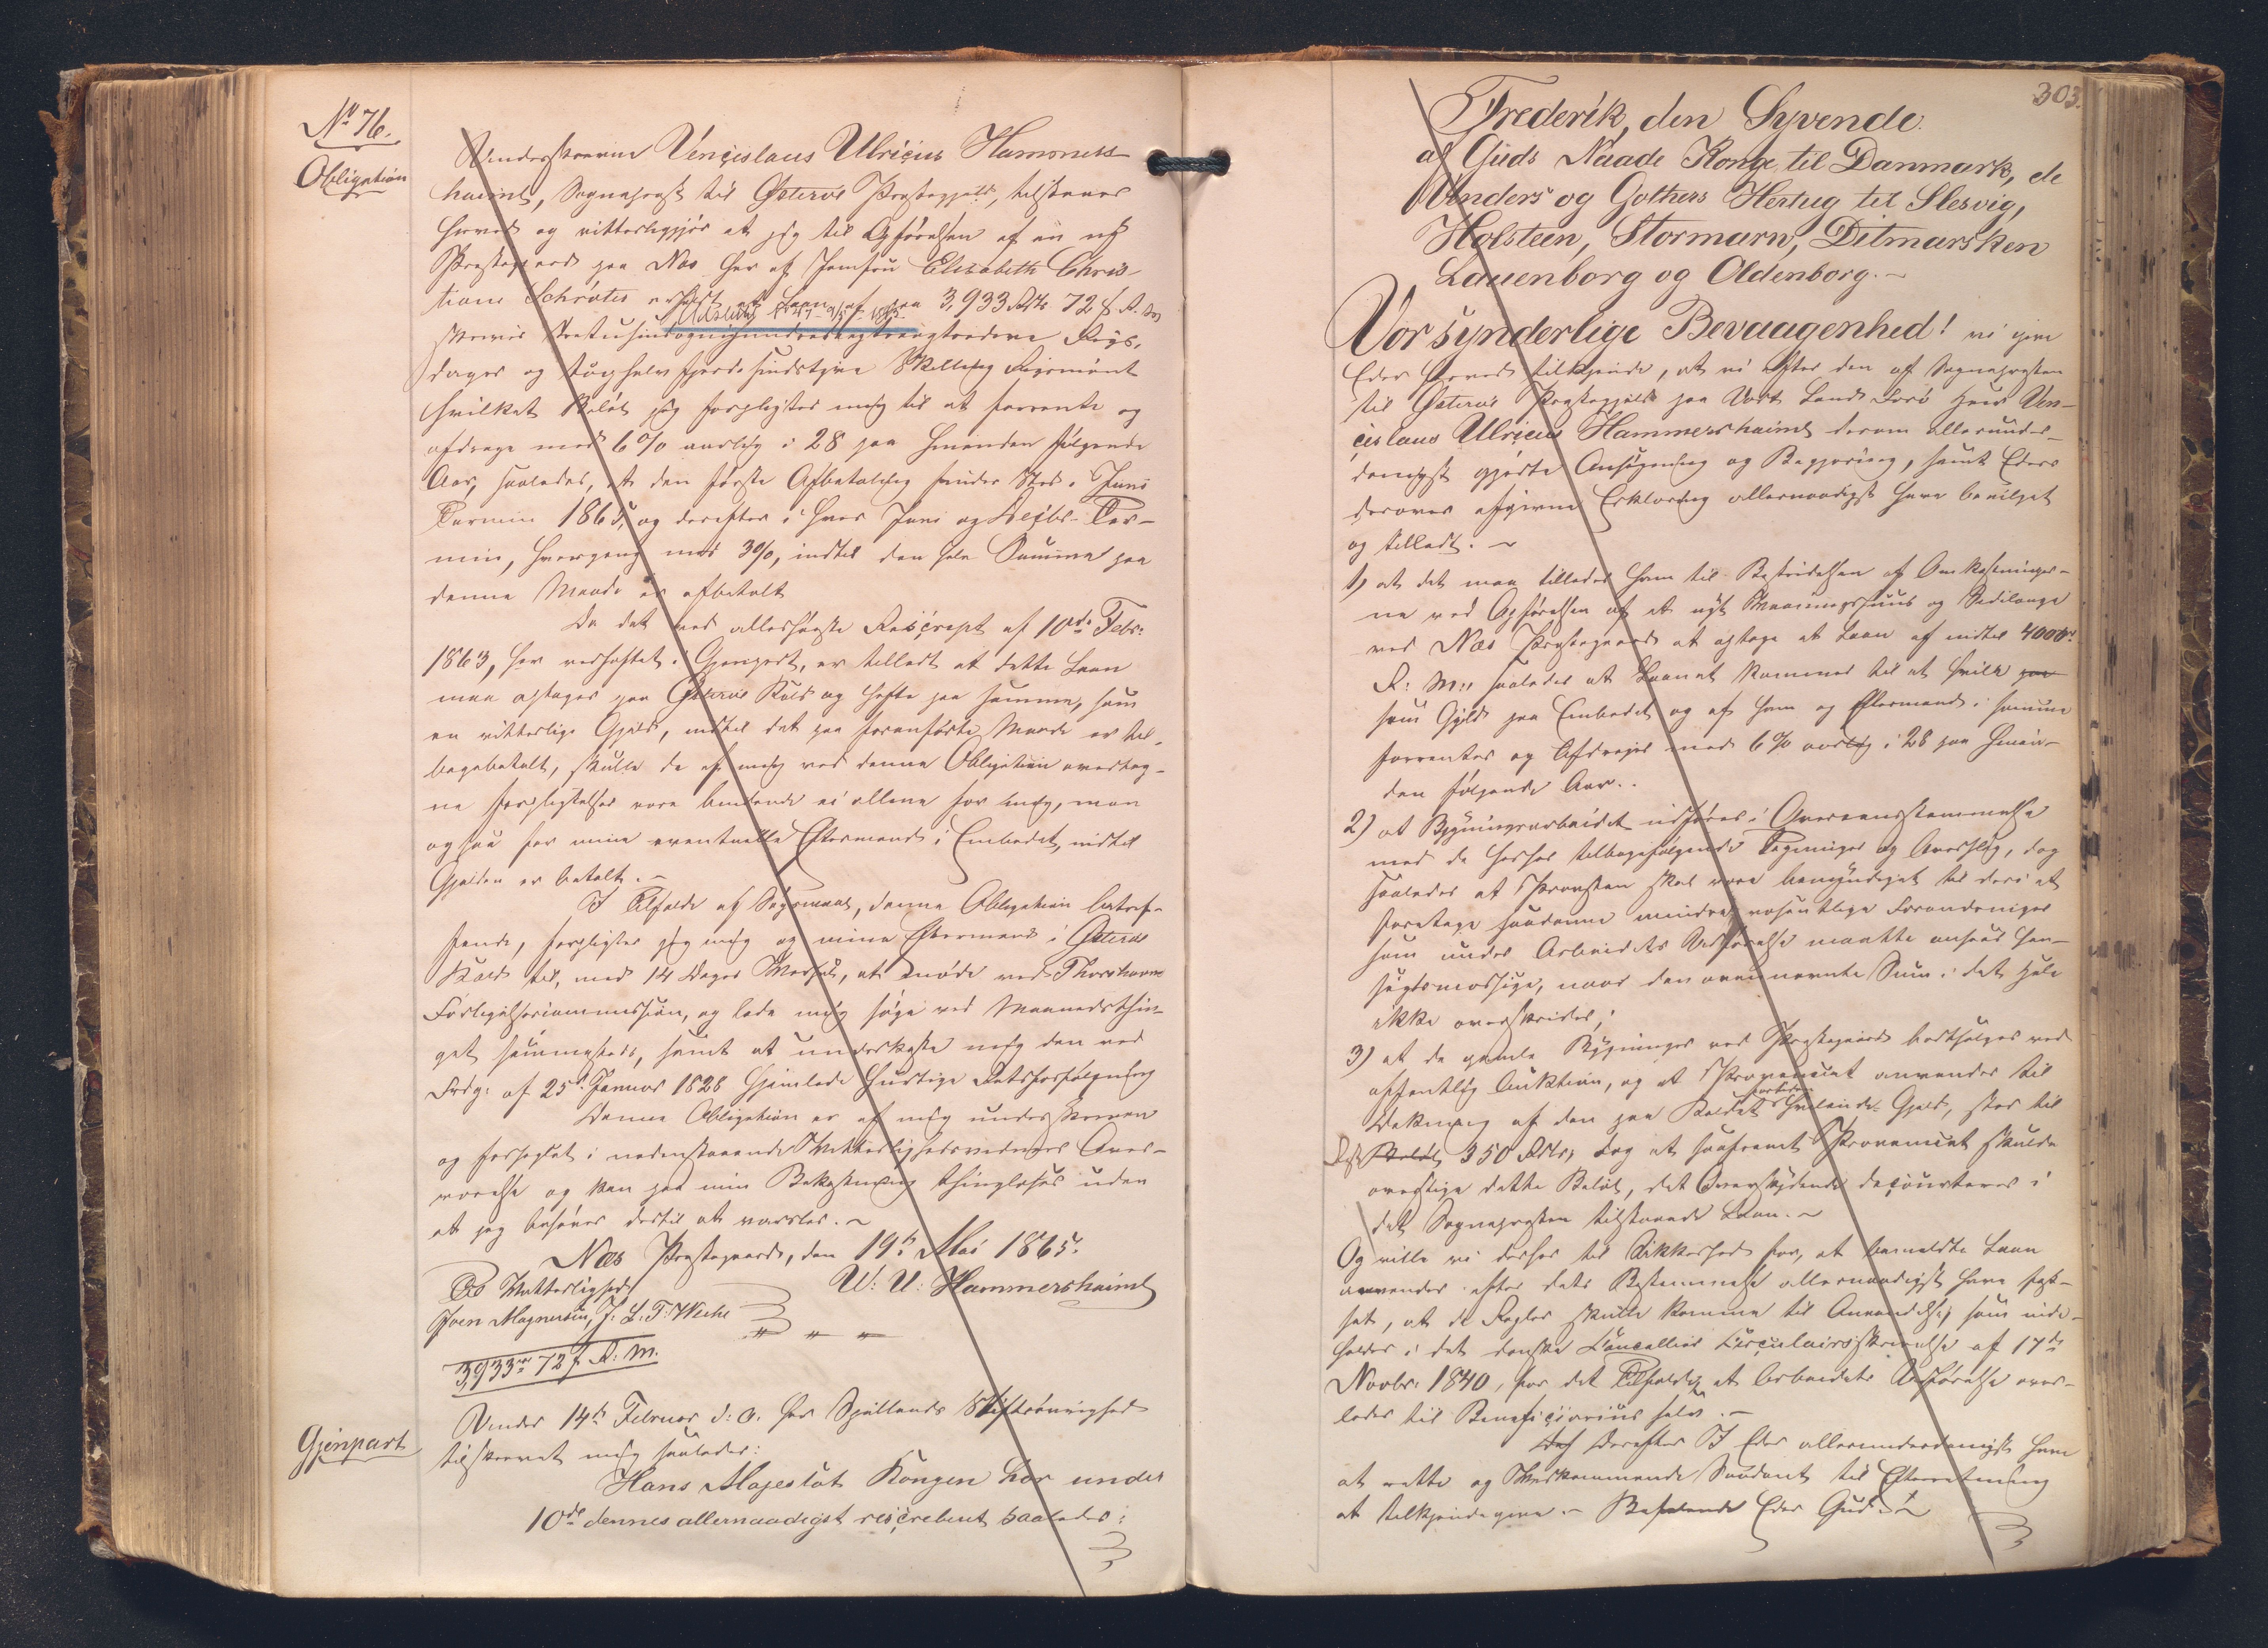 No 76.
Obligation
Underskrevne Vençislaus Ulriçius Hammers-
haimb, Sognepræst til Østerøs Præstegjeld, tilstaaer
herved og vitterliggjör at jeg til Opførelsen af en ny
Præstegaard paa Næs har af Jomfru Elisabeth Chris-
tiane Schrøter erholdt et Laan af paa 3,933 Rdlr 72 ß R. M.
skriver Tretusindognihundredeogtreogtredive Rigs-
daler og tooghalvfjerdsindstyve Skilling Rigsmønt
hvilket Beløb jeg forpligter mig til at forrente og
afdrage med 6% aarlig i 28 paa hinanden følgende
Aar, saaledes, at den første Afbetaling finder Sted i Juni
Termin 1865, og derefter i hver Juni og Decbr. Ter-
min, hvergang med 3%, indtil den hele Summa paa
denne Maade er afbetalt
Da det ved allerhøieste Resçript af 10de Febr.
1863, her vedheftet i Gjenpart, er tilladt at dette Laan
maa optages paa Østerøs Kald og hefte paa samme, som
en vitterlige Gjæld, indtil det paa foranførte Maade er til-
bagebetalt, skulle de af mig ved denne Obligation overtag-
ne Forpligtelser være bindende ei allene for mig, men
ogsaa for mine eventuelle Eftermænd i Embedet, indtil
Gjælden er betalt. –
I Tilfælde af Søgsmaal, denne Obligation betræf-
fende, forpligter jeg mig og mine Eftermænd i Østerøs
Kald til, med 14 Dages Varsel, at møde ved Thorshavns
Forligelsescommission, og lade mig søge ved Maanedsthin-
get sammesteds, samt at underkaste mig den ved
Frdg: af 25d. Januar 1828 hjemlede hurtige Retsforfølgning
Denne Obligation er af mig underskreven
og forseglet i nedenstaaende Vitterlighedsvidners Over-
værelse og kan paa min Bekostning thinglæses uden
at jeg behøver dertil at varsles. ~
Næs Præstegaard, den 19de Mai 1865.
Til Vitterlighed
V: U: Hammershaimb
Joen Magnussen, J. L. T. Weihe
3,933 rd 72 ß R. M.
Gjenpart
Under 14de Februar d: A. har Sjællands Stiftsøvrighed
tilskrevet mig saaledes:
Hans Majestæt Kongen har under
10de dennes allernaadigst resçreberet saaledes:
303.
Frederik, den Syvende
af Guds Naade Konge til Danmark, de
Venders og Gothers Hertug til Slesvig,
Holsteen, Stormarn, Ditmarsken
Lauenborg og Oldenborg. ~
Vor synderlige Bevaagenhed! vi give
Eder herved tilkjende, at vi efter den af Sognepræsten
til Østerøs Præstegjeld paa Vort Land Færø Herr Ven-
çislaus Ulriçius Hammershaimb derom allerunder-
danigst gjorte Ansøgning og Begjæring, samt Eders
derover afgivne Erklæring allernaadigst have bevilget
og tilladt. ~
1) at det maa tillades ham til Bestridelsen af Omkostninger-
ne ved Opførelsen af et nyt Vaaningshuus og Sidelænge
ved Næs Præstegaard at optage et Laan af indtil 4000rd
R: M:, saaledes at Laanet kommer til at hvile paa
som Gjæld paa Embedet og af ham og Eftermænd i samme
forrentes og afdrages med 6% aarlig i 28 paa hinan-
den følgende Aar. .
2) at Bygningsarbeidet udføres i Overeensstemmelse
med de herhos tilbagefølgende Tegninger og Overslag, dog
saaledes at Provsten skal være bemyndiget til deri at
foretage saadanne mindre væsentlige Forandringer
som under Arbeidets Udførelse maatte ansees hen-
sigtsmæssige, naar den ovennævnte Sum i det Hele
ikke overskrides;
3) at de gamle Bygninger ved Præstegaarden bortsælges ved
offentlig Auktion, og at Provenuet anvendes til
Dækning af den paa Kaldet forhen hvilende Gjæld, stor til
Rest Beløb 350 Rdlr; dog at saafremt Provenuet skulde
overstige dette Beløb, det Overskydende decourteres i
det Sognepræsten tilstaaede Laan. ~
Og ville vi derhos til Sikkerhed for, at bemeldte Laan
anvendes efter dets Bestemmelse allernaadigst have fast-
sat, at de Regler skulle komme til Anvendelse, som inde-
holdes i det danske Cancellies Circulairskrivelse af 17de
Novbr. 1840, for det Tilfælde, at Arbeidets Udførelse over-
lades til Benefiçiarius selv. –
Derefter I Eder allerunderdanigst have
at rette og Vedkommende Saadant til Efterretning
at tilkjendegive. – Befalende Eder Gud. ~